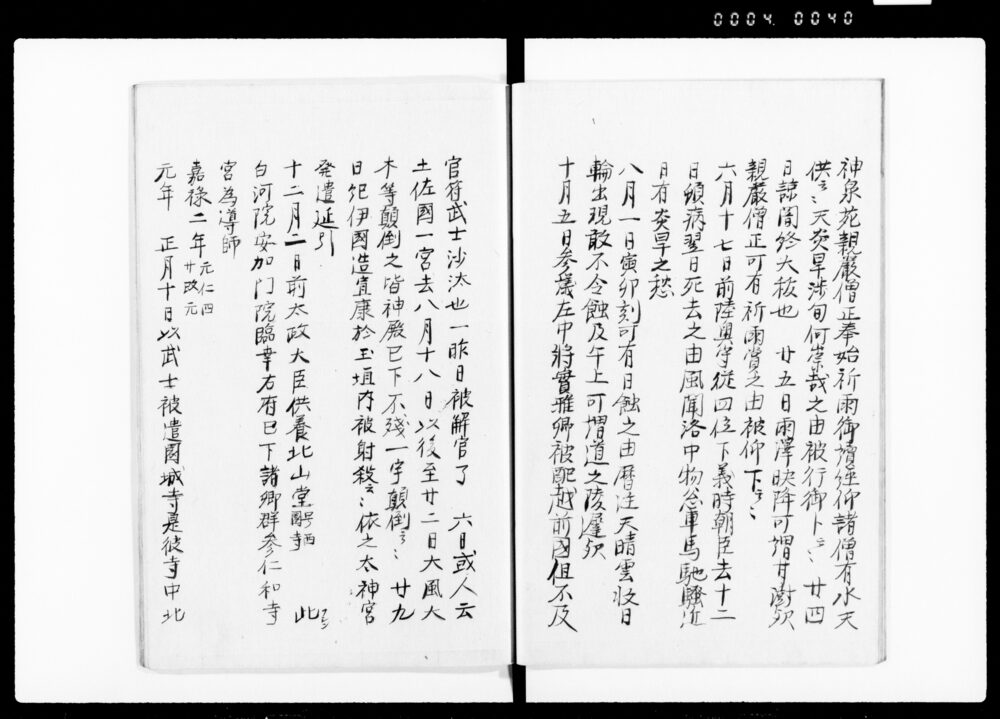 0004 0040
神泉苑親嚴僧正奉始祈雨御讀經仰諸僧有水天
供〻天炎旱涉旬何祟哉之由被行御卜〻〻廿四
日諒闇終大祓也 廿五日雨澤快降可謂甘澍歟
親嚴僧正可有祈雨賞之由被仰下〻〻
六月十七日前陸奥守從四位下義時朝臣去十二
日頓病翌日死去之由風聞洛中物忩車馬馳騷近
日有炎旱之愁
八月一日寅卯刻可有日蝕之由曆注天晴雲收日
輪出現敢不令蝕及午上可謂道之陵遲歟
十月五日參議左中將實雅卿被配越前國但不及
官符武士沙汰也一昨日被解官了 六日或人云
土佐國一宮去八月十八日以後至廿二日大風大
木等顛倒之皆神殿已下不殘一宇顛倒〻〻 廿九
日紀伊國造宣康於玉垣内被射殺〻〻依之太神宮
発遣延引
十二月二日前太政大臣供養北山堂號西寺 此
白河院安加門院臨幸右府已下諸卿群參仁和寺
宮為導師
嘉祿二年元仁四廿改元
元年 正月十日以武士被遣園城寺是彼寺中北